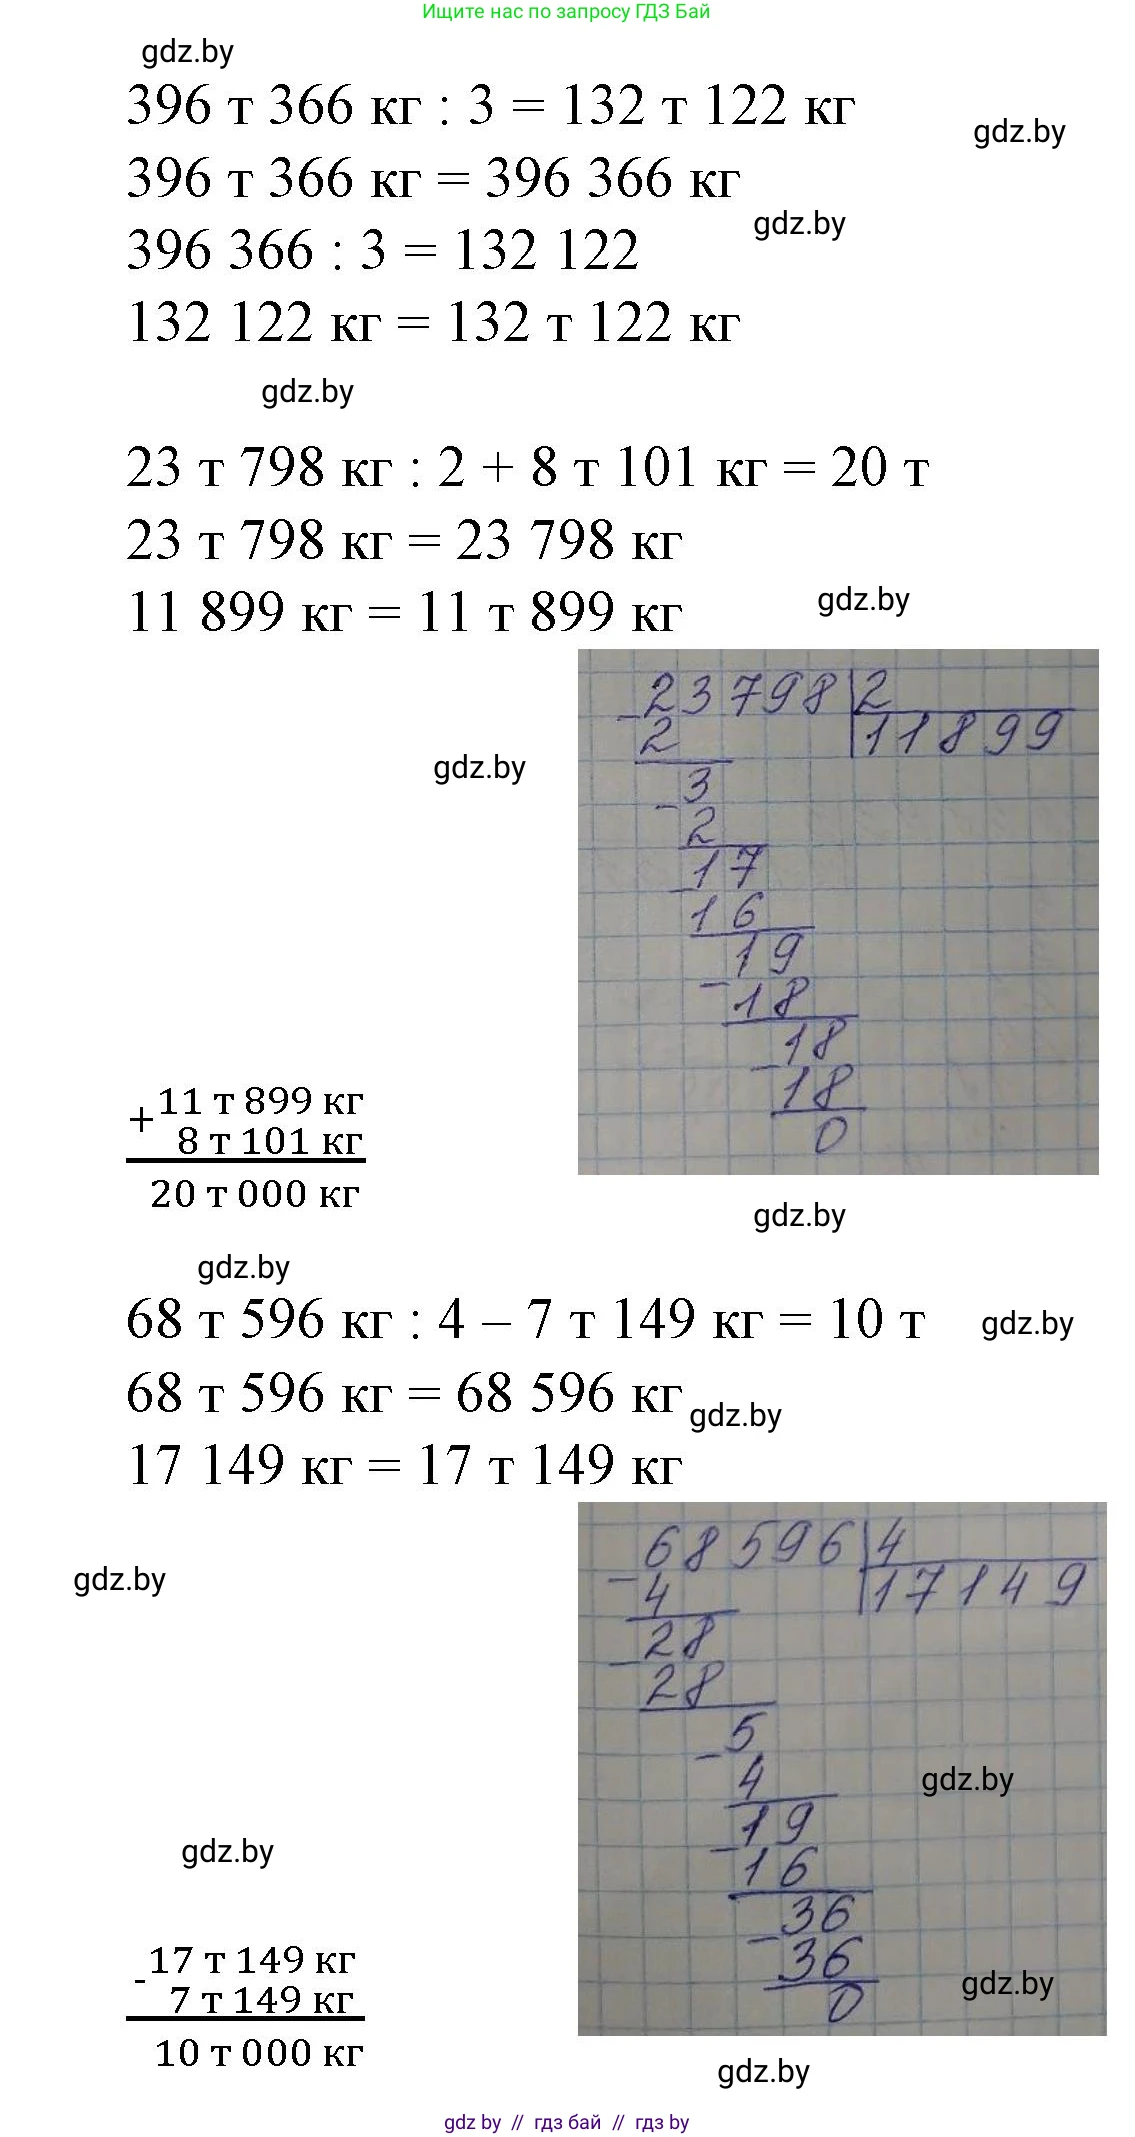 Ищите нас по запросу ГДЗ Бай
gdz.by
396 т 366 кг : 3 = 132 т 122 кг
gdz.by
396 т 366 кг = 396 366 кг
gdz.by
396 366 : 3 = 132 122
132 122 кг = 132 т 122 кг
gdz.by
23 т 798 кг : 2 + 8 т 101 кг = 20 т
23 т 798 кг = 23 798 кг
11 899 кг = 11 т 899 кг
gdz.by
23798 2
- 2 11899
gdz.by
- 3
2
- 17
16
- 19
18
- 18
18
0
+ 11 т 899 кг
8 т 101 кг
20 т 000 кг
gdz.by
gdz.by
68 т 596 кг : 4 – 7 т 149 кг = 10 т
gdz.by
68 т 596 кг = 68 596 кг
gdz.by
17 149 кг = 17 т 149 кг
68596 4
- 4 17149
gdz.by
- 28
28
- 5
4
gdz.by
- 19
16
gdz.by
- 36
36
0
gdz.by
- 17 т 149 кг
7 т 149 кг
10 т 000 кг
gdz.by
gdz by // гдз бай // гдз by